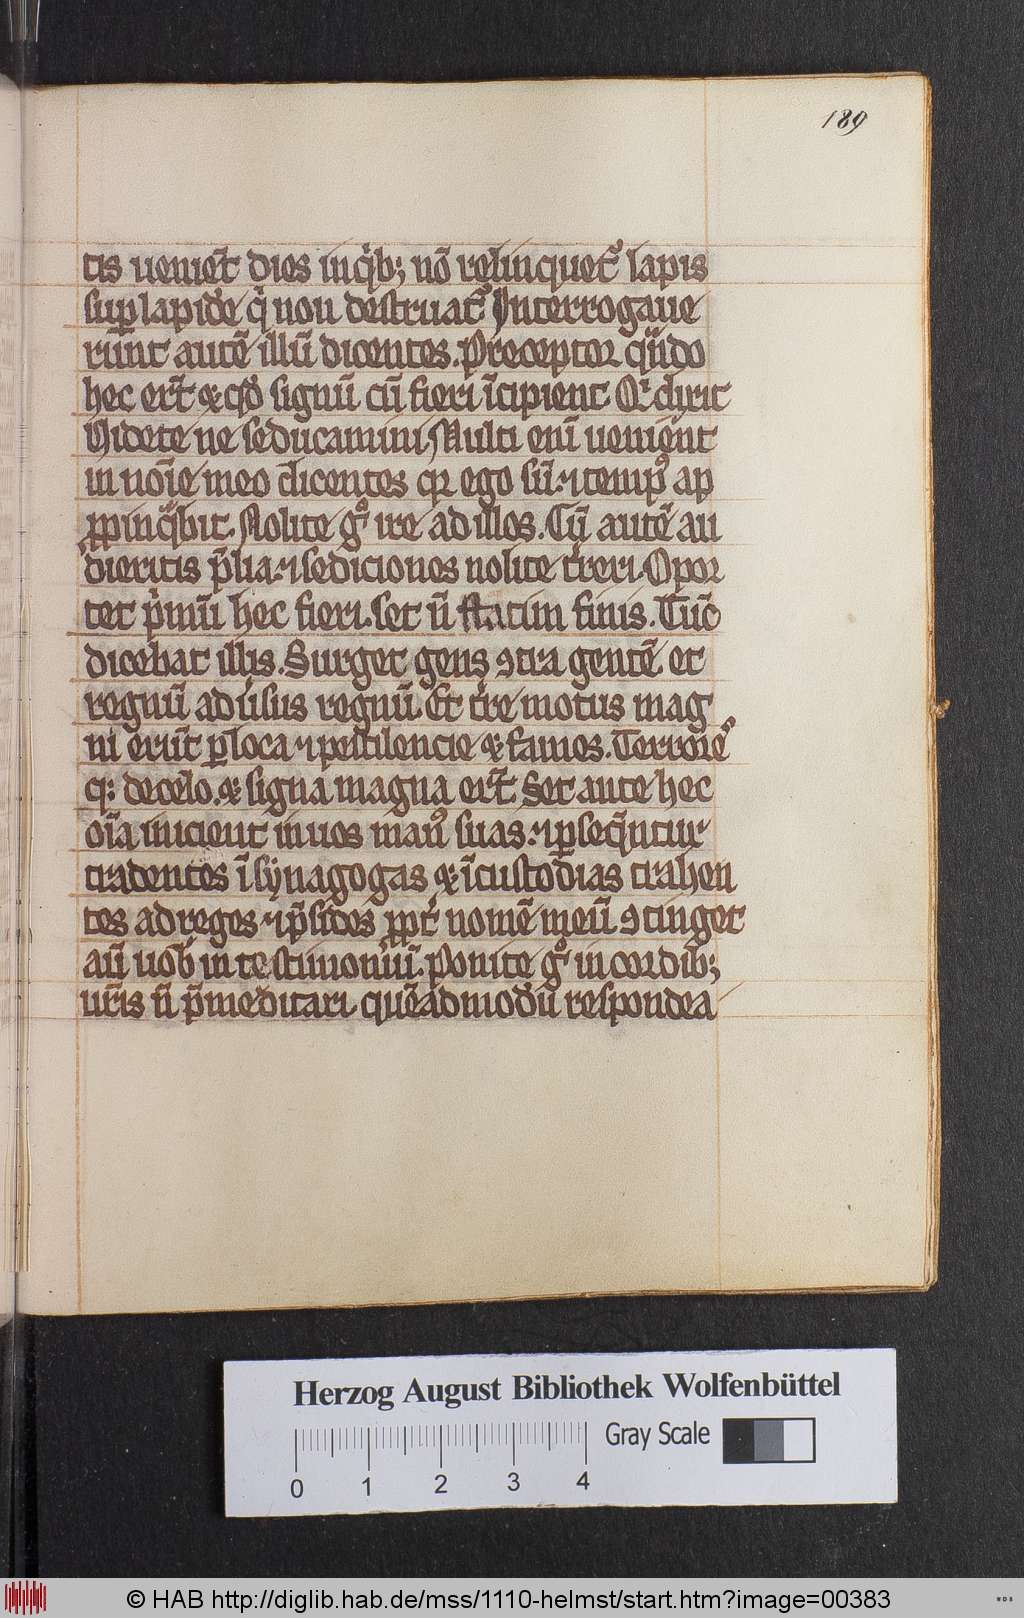 189
tis ueniēt dies in qͥbꝫ nō relinquet᷑ lapis
suꝑ lapidē qͥ non destruat᷑ Interrogaue
rūnt autē illū dicentes. Preceptor qͣndo
hec erūt ⁊ qd̓ signū cū fieri īcipient Qͥ dixit
Videte ne seducamini. Multi enī ueniēnt
in noīe meo dicentes qꝛ ego sū. ⁊ tempꝰ ap
ꝓpinqͣbit. Nolite gͦ ire ad illos. Cū autē au
dieritis p̄lia. ⁊ sediciones nolite t̓reri. Opor
tet pͥmū hec fieri. set n̄ statim finis. Tūc
dicebat illis. Surget gens ꝯtra gentē et
regnū aduͥsus regnū. Et t̓re motus mag
ni erūt ꝑ loca ⁊ pestilencie ⁊ fames. Terroreſ
qꝫ de celo. ⁊ signa magna erūt. Set ante hec
oīa inicient in uos manꝰ suas. ⁊ ꝑseqͣntur
tradentes ī synagogas ⁊ ī custodias trahen
tes ad reges ⁊ p̄sides ꝓpt̓ nomē meū ꝯtinget
aū uob̓ in testimoniū. Ponite gͦ in cordibꝫ
ur̄is n̄ p̄meditari quēadmodū respondea
Herzog August Bibliothek Wolfenbüttel
Gray Scale
0 1 2 3 4
© HAB http://diglib.hab.de/mss/1110-helmst/start.htm?image=00383